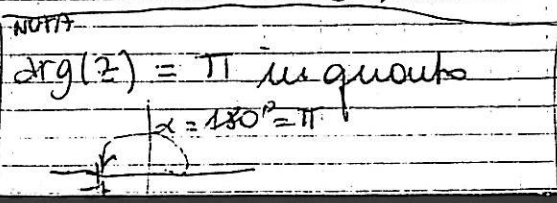 NOTA
arg(z) = π in quanto
α = 180° = π
-1